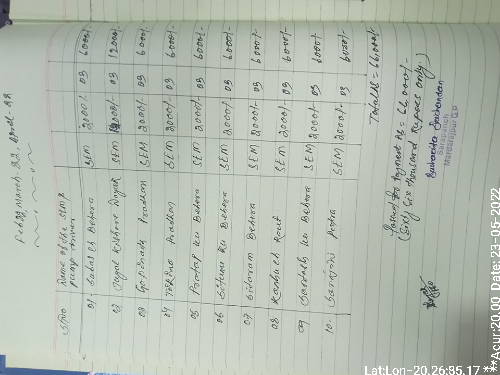 Feb 22, March 22, April 22
Sl.No Name of the SEM &
pump driver
01 Babal Ch Behera SEM 2000/- 03 6000/-
02 Jugal Kishore Nayak SEM 03 12000/-
03 Gopinath Pradhan SEM 2000/- 03 6000/-
04 Pradhan SEM 2000/- 03 6000/-
05 Pratap Ku Behera SEM 2000/- 03 6000/-
06 Ku Behera SEM 2000/- 03 6000/-
07 Sitaram Behera SEM 2000/- 03 6000/-
08 Rout SEM 2000/- 03 6000/-
09 Ku Behera SEM 2000/- 03 6000/-
10. SEM 2000/- 03 6000/-
Total Rs = 66,000/-
Passed for payment Rs = 66,000/-
(Sixty six thousand Rupees only)
Sarpanch
Mardarajpur G.P
Lat:Lon- 20.26:85.17 ***Acur:20.00 Date: 23-05-2022